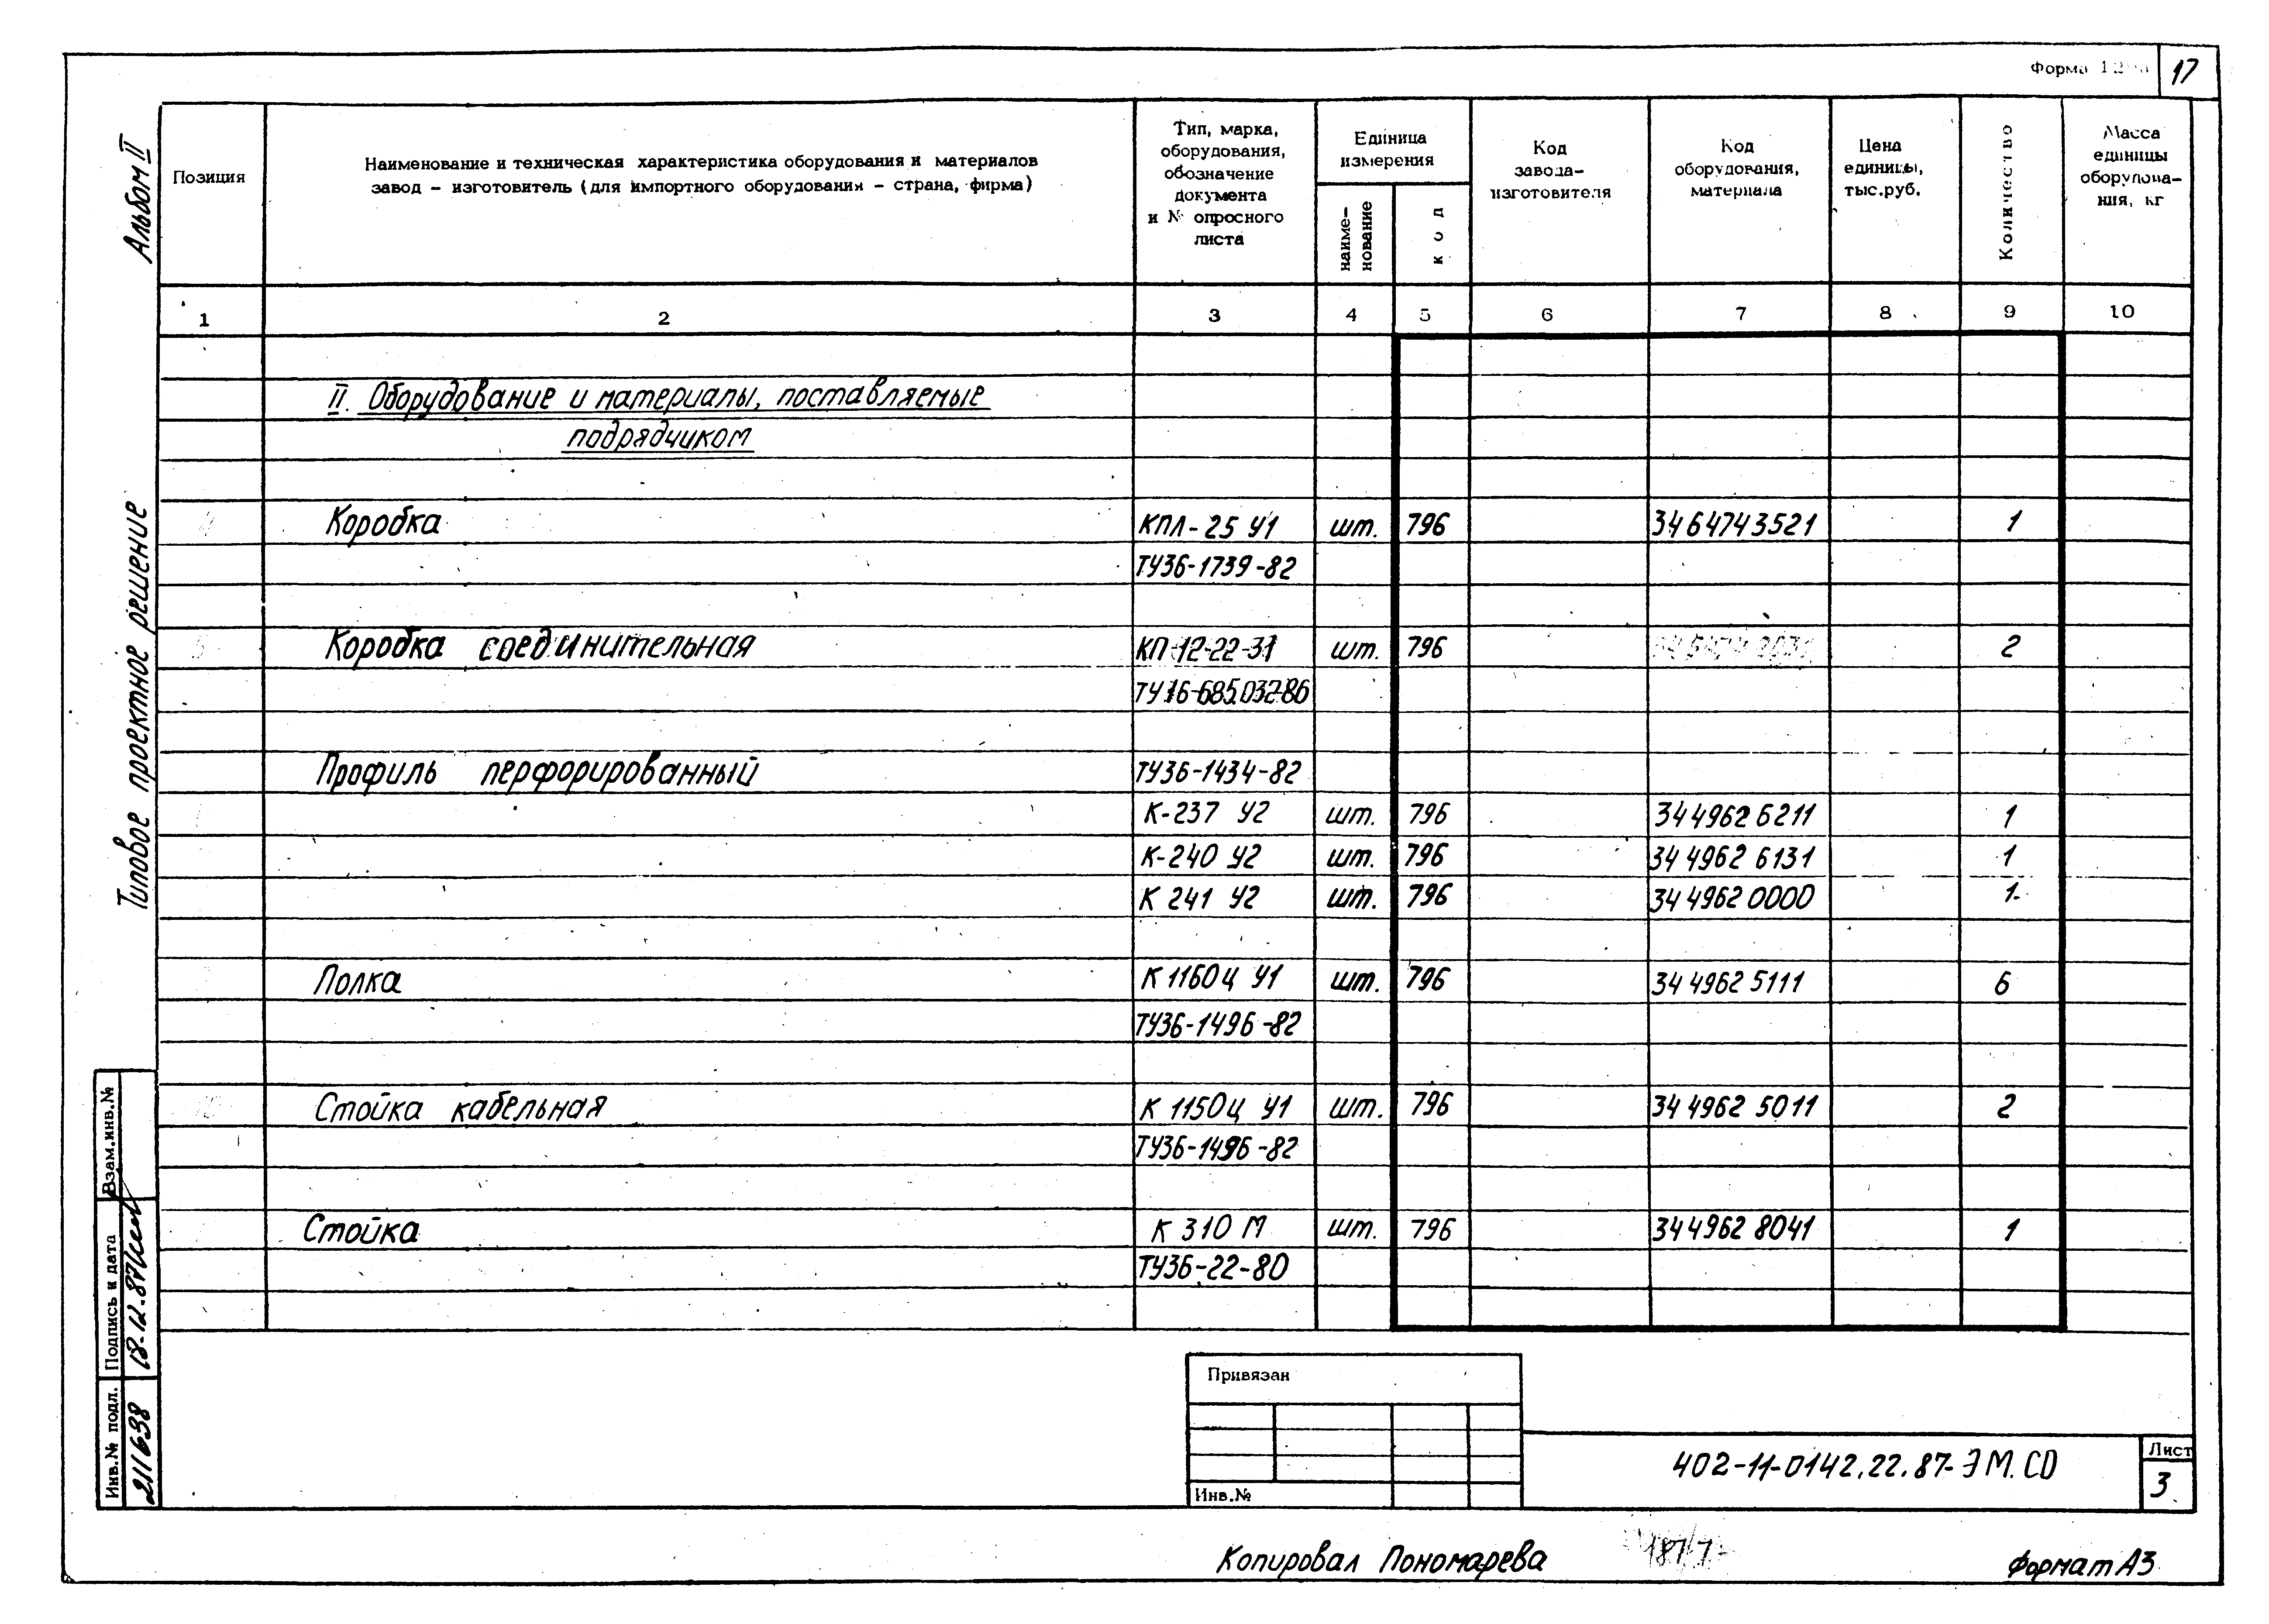 Форма
17
Альбом II
Типовое проектное решение
Позиция
Наименование и техническая характеристика оборудования и материалов
завод – изготовитель (для импортного оборудования – страна, фирма)
Тип, марка,
оборудования,
обозначение
документа
и № опросного
листа
Единица
измерения
наиме-
нование
код
Код
завода-
изготовителя
Код
оборудования,
материала
Цена
единицы,
тыс.руб.
Количество
Масса
единицы
оборудова-
ния, кг
1 2 3 4 5 6 7 8 9 10
II. Оборудование и материалы, поставляемые
подрядчиком
Коробка КПЛ-25 У1 шт. 796 34 6474 3521 1
ТУ36-1739-82
Коробка соединительная КП-12-22-31 шт. 796 2
ТУ16-685.032-86
Профиль перфорированный ТУ36-1434-82
К-237 У2 шт. 796 34 4962 6211 1
К-240 У2 шт. 796 34 4962 6131 1
К 241 У2 шт. 796 34 4962 0000 1
Полка К 1160ц У1 шт. 796 34 4962 5111 6
ТУ36-1496-82
Стойка кабельная К 1150ц У1 шт. 796 34 4962 5011 2
ТУ36-1496-82
Стойка К 310 М шт. 796 34 4962 8041 1
ТУ36-22-80
Взам.инв.№
Подпись и дата
18.12.87
Инв.№ подл.
211638
Привязан
Инв.№
402-11-0142.22.87-ЭМ.СО
Лист
3
Копировал Пономарева
Формат А3